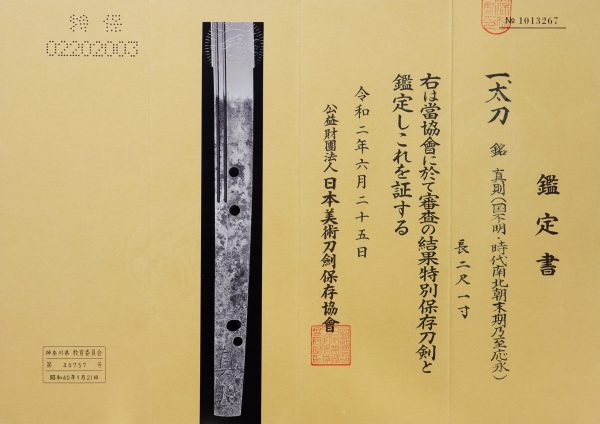 № 1013267
鑑定書
一、太刀 銘 真則(国不明・時代南北朝末期乃至応永)
長二尺一寸
右は當協會に於て審査の結果特別保存刀剣と
鑑定しこれを証する
令和二年六月二十五日
公益財團法人 日本美術刀劍保存協會
特保
02202003
神奈川県 教育委員会
第 40757 号
昭和40年9月21日